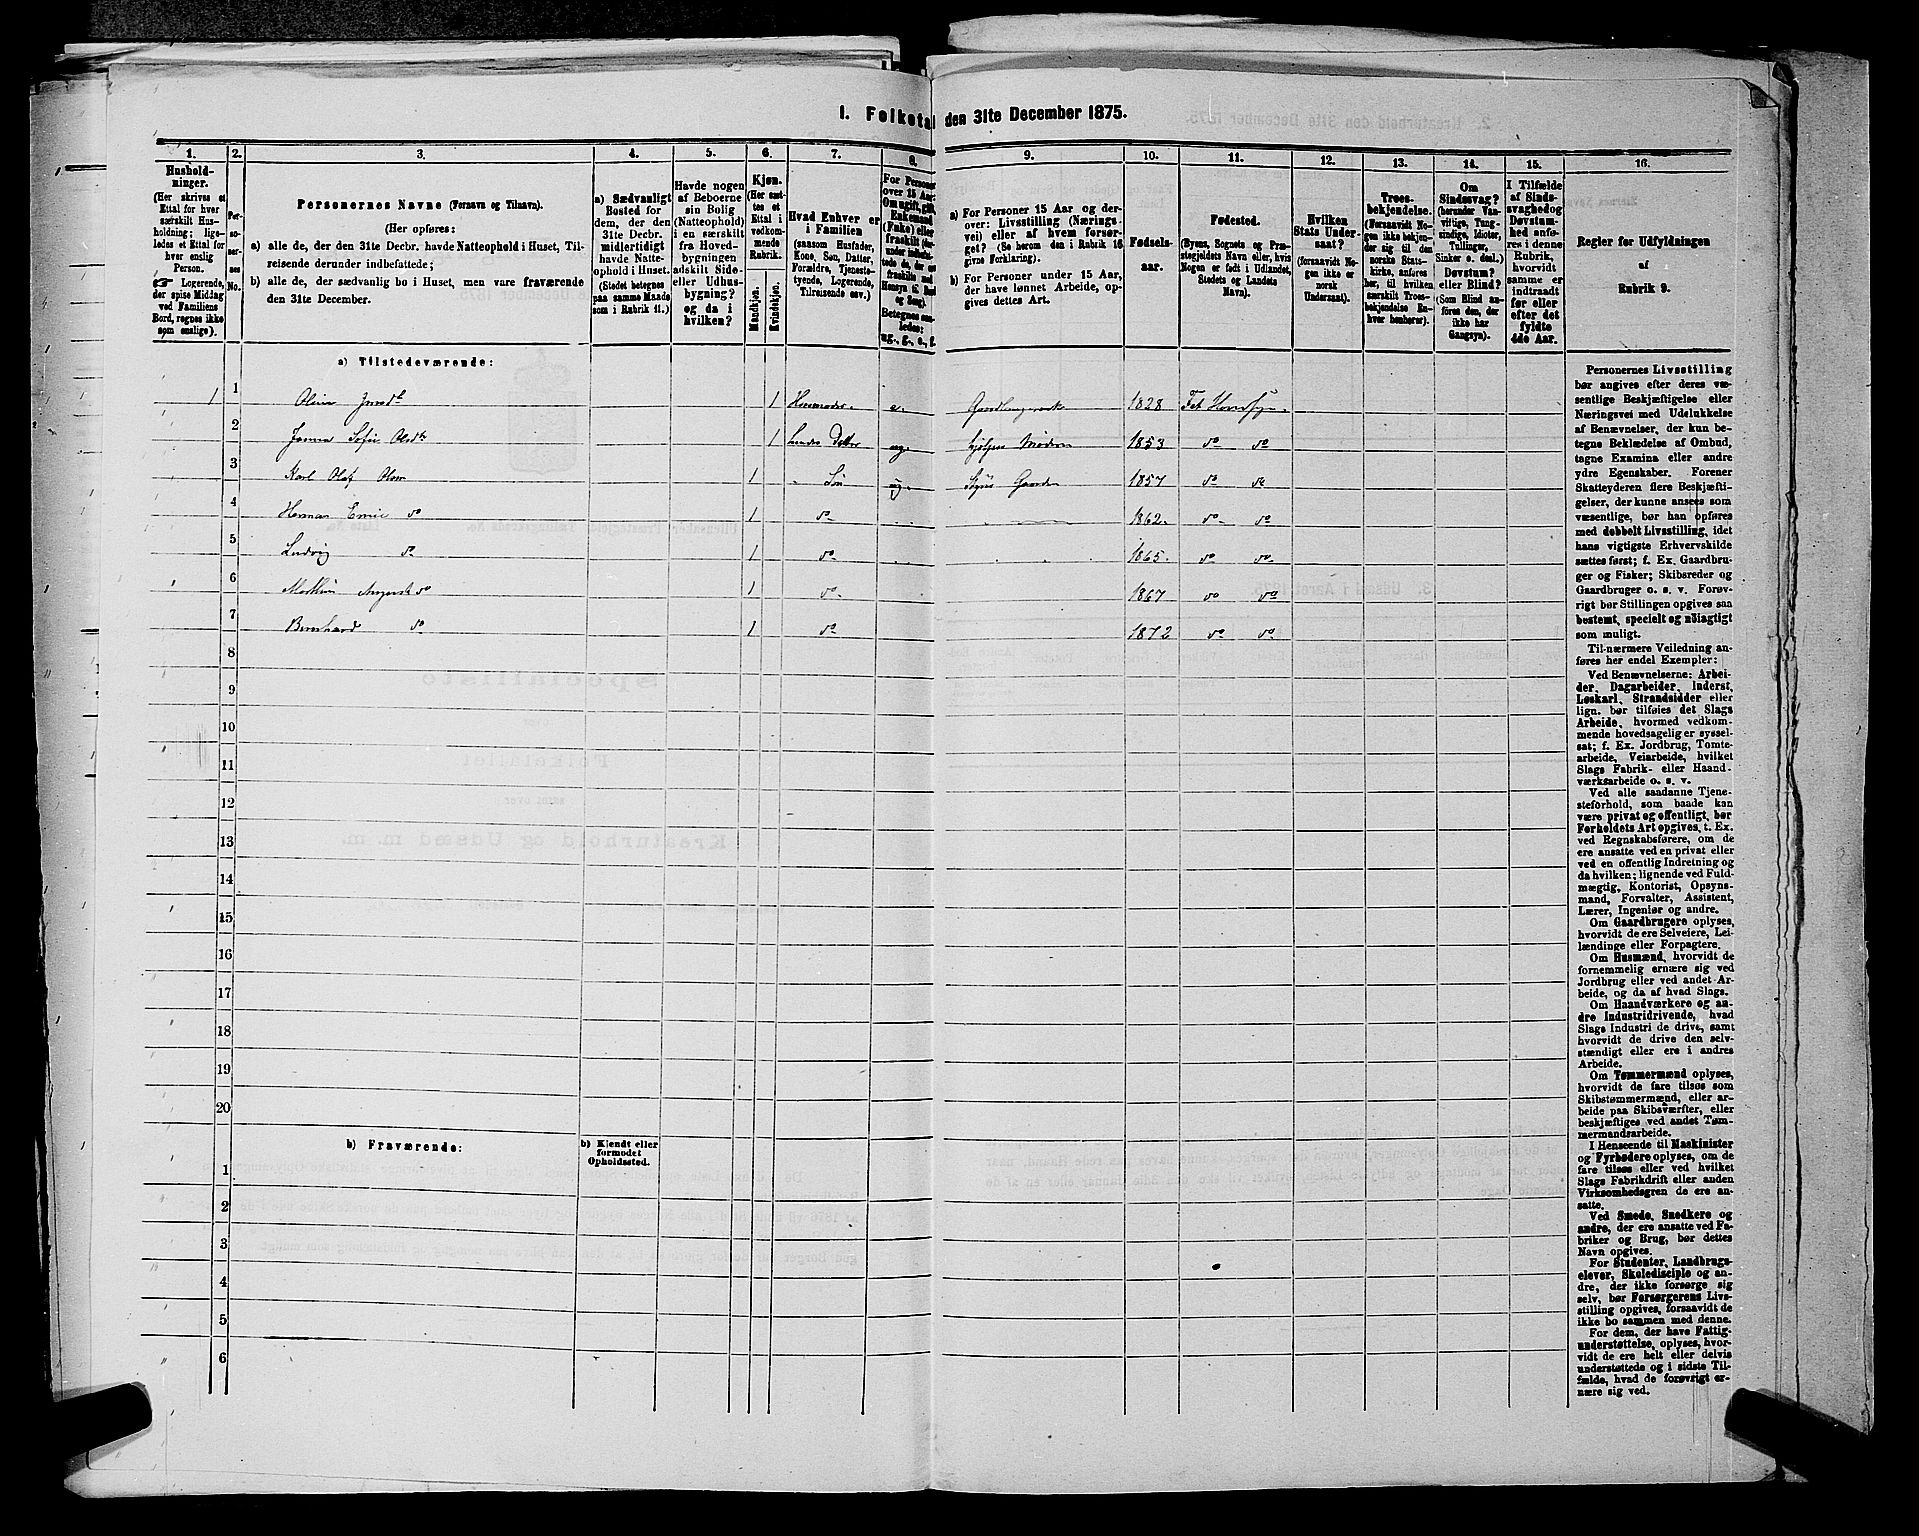 1. Folketal den 31te December 1875.
1.
2.
3.
4.
5.
6.
7.
8.
9.
10.
11.
12.
13.
14.
15.
16.
Hushold-
ninger.
(Her skrives et
Ettal for hver
særskilt Hus-
holdning; lige-
ledes et Ettal for
hver enslig
Person.
☞ Logerende,
der spise Middag
ved Familiens
Bord, regnes ikke
som enslige).
Per-
so-
ner-
nes
No.
Personernes Navne (Fornavn og Tilnavn).
(Her opføres:
a) alle de, der den 31te Decbr. havde Natteophold i Huset, Til-
reisende derunder indbefattede;
b) alle de, der sædvanlig bo i Huset, men vare fraværende
den 31te December.
a) Sædvanligt
Bosted for
dem, der den
31te Decbr.
midlertidigt
havde Natte-
ophold i Huset.
(Stedet betegnes
paa samme Maade
som i Rubrik 11.)
Havde nogen
af Beboerne
sin Bolig
(Natteophold)
i en særskilt
fra Hoved-
bygningen
adskilt Side-
eller Udhus-
bygning?
og da i
hvilken?
Kjøn.
(Her sæt-
tes et
Ettal i
vedkom-
mende
Rubrik.
Mandkjøn.
Kvindekjøn.
Hvad Enhver er
i Familien
(saasom Husfader,
Kone, Søn, Datter,
Forældre, Tjeneste-
tyende, Logerende,
Tilreisende osv.)
For Personer
over 15 Aar:
Om ugift, gift,
Enkemand
(Enke) eller
fraskilt
Betegnes saa-
ledes:
ug., g., e., f.
a) For Personer 15 Aar og der-
over: Livsstilling (Nærings-
vei) eller af hvem forsør-
get? (Se herom den i Rubrik 16
givne Forklaring).
b) For Personer under 15 Aar,
der have lønnet Arbeide, op-
gives dettes Art.
Fødsels-
aar.
Fødested.
(Byens, Sognets og Præ-
stegjeldets Navn eller, hvis
Nogen er født i Udlandet,
Stedets og Landets
Navn).
Hvilken
Stats Under-
saat?
(forsaavidt No-
gen ikke er
norsk
Undersaat).
Troes-
bekjendelse.
(Forsaavidt No-
gen ikke bekjen-
der sig til den
norske Stats-
kirke, anføres
her, til hvilken
særskilt Troes-
bekjendelse En-
hver henhører).
Om
Sindssvag?
(herunder Van-
vittige, Tung-
sindige, Idioter,
Tullinger,
Sinker o. desl.)
Døvstum?
eller Blind?
(Som Blind an-
føres den, der
ikke har
Gangsyn).
I Tilfælde
af Sinds-
svaghed og
Døvstum-
hed anfø-
res i denne
Rubrik,
hvorvidt
samme er
indtraadt
før eller
efter det
fyldte
4de Aar.
Regler for Udfyldningen
af
Rubrik 9.
a) Tilstedeværende:
1 1 Oline 1 e. 1828 Fet
2 Sofie 1 Datter ug. 1853 do do
3 Karl Olaf Olsen 1 Søn ug. 1857 do do
4 Herman Emil do 1 do 1862. do do
5 Ludvig do 1 do 1865. do do
6 do 1 do 1867 do do
7 Bernhard do 1 do 1872 do do
8
9
10
11
12
13
14
15
16
17
18
19
20
b) Fraværende:
b) Kjendt eller
formodet
Opholdssted.
1
2
3
4
5
6
Personernes Livsstilling
bør angives efter deres væ-
sentlige Beskjæftigelse eller
Næringsvei med Udelukkelse
af Benævnelser, der kun be-
tegne Beklædelse af Ombud,
tagne Examina eller andre
ydre Egenskaber. Forener
Skatteyderen flere Beskjæfti-
gelser, der kunne ansees som
væsentlige, bør han opføres
med dobbelt Livsstilling, idet
hans vigtigste Erhvervskilde
sættes først; f. Ex. Gaardbru-
ger og Fisker; Skibsreder og
Gaardbruger o. s. v. Forøv-
rigt bør Stillingen opgives saa
bestemt, specielt og nøiagtigt
som muligt.
Til nærmere Veiledning an-
føres her endel Exempler:
Ved Benævnelserne: Arbei-
der, Dagarbeider, Inderst,
Løskarl, Strandsidder eller
lign. bør tilføies det Slags
Arbeide, hvormed vedkom-
mende hovedsagelig er syssel-
sat; f. Ex. Jordbrug, Tomte-
arbeide, Veiarbeide, hvilket
Slags Fabrik- eller Haand-
værksarbeide o. s. v.
Ved alle saadanne Tjene-
steforhold, som baade kan
være privat og offentligt, bør
Forholdets Art opgives, t. Ex.
ved Regnskabsførere, om de
ere ansatte ved en privat eller
ved en offentlig Indretning og
da hvilken; lignende ved Fuld-
mægtig, Kontorist, Opsyns-
mand, Forvalter, Assistent,
Lærer, Ingeniør og andre.
Om Gaardbrugere oplyses,
hvorvidt de ere Selveiere, Lei-
lændinge eller Forpagtere.
Om Husmænd, hvorvidt de
fornemmelig ernære sig ved
Jordbrug eller ved andet Ar-
beide, og da af hvad Slags.
Om Haandværkere og an-
dre Industridrivende, hvad
Slags Industri de drive, samt
hvorvidt de drive den selv-
stændigt eller ere i andres
Arbeide.
Om Tømmermænd oplyses,
hvorvidt de fare tilsøs som
Skibstømmermænd, eller ar-
beide paa Skibsværfter, eller
beskjæftiges ved andet Tøm-
mermandsarbeide.
I Henseende til Maskinister
og Fyrbødere oplyses, om de
fare tilsøs eller ved hvilket
Slags Fabrikdrift eller anden
Virksomhedsgren de ere an-
satte.
Ved Smede, Snedkere og
andre, der ere ansatte ved Fa-
briker og Brug, bør dettes
Navn opgives.
For Studenter, Landbrugs-
elever, Skoledisciple og an-
dre, der ikke forsørge sig
selv, bør Forsørgerens Livs-
stilling opgives, forsaavidt de
ikke bo sammen med denne.
For dem, der have Fattig-
understøttelse, oplyses, hvor-
vidt de ere helt eller delvis
understøttede og i sidste Til-
fælde, hvad de forøvrigt er-
nære sig ved.